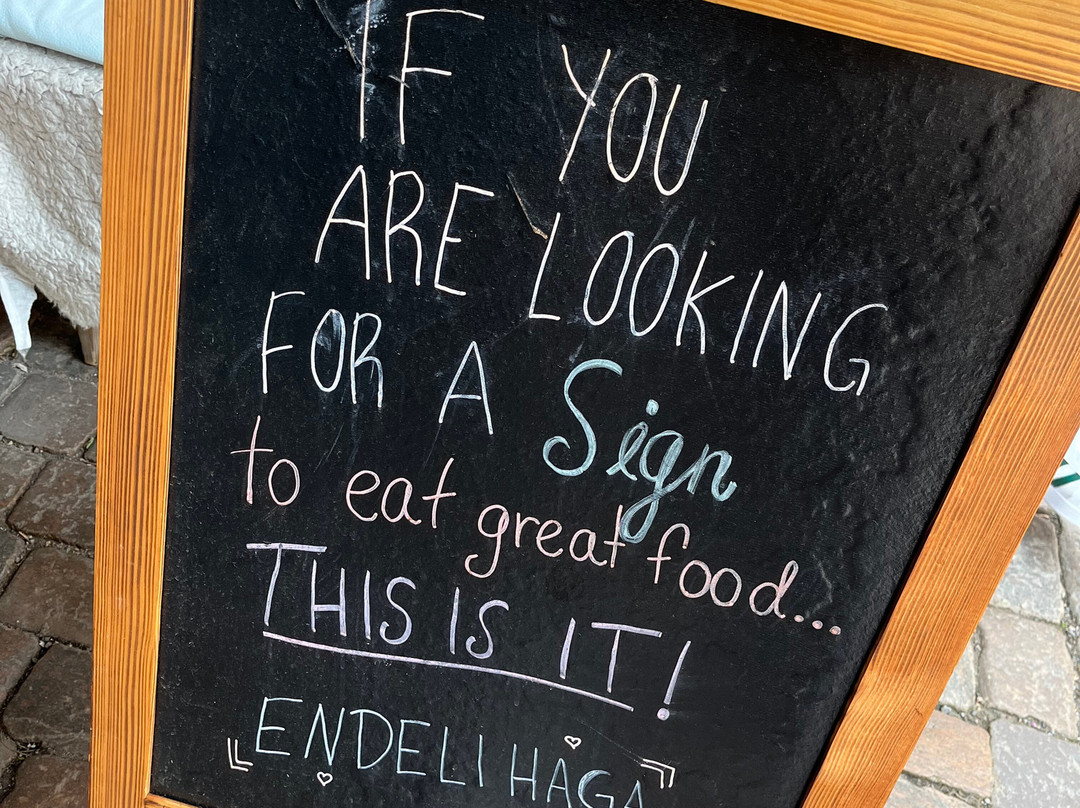 IF YOU
ARE LOOKING
FOR A Sign
to eat great food...
THIS IS IT!
ENDELI HAGA